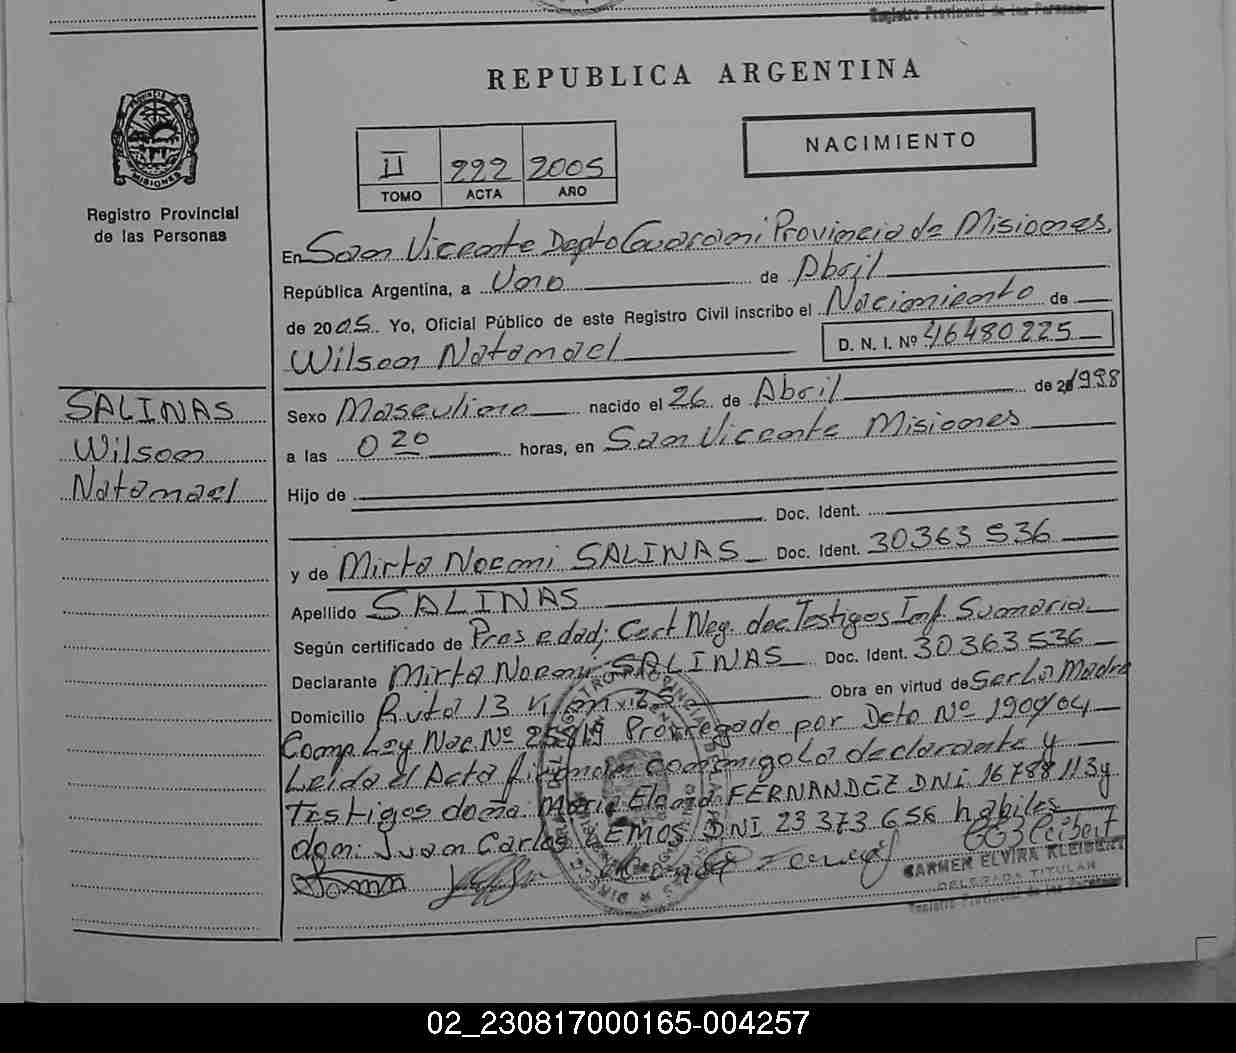 Registro Provincial de las Personas
REPUBLICA ARGENTINA
NACIMIENTO
II 222 2005
TOMO ACTA AÑO
PROVINCIA DE MISIONES
Registro Provincial
de las Personas
SALINAS
Wilson
Natanael
En San Vicente Depto Guarani Provincia de Misiones
República Argentina, a Uno de Abril
de 2005 Yo, Oficial Público de este Registro Civil inscribo el Nacimiento de
Wilson Natanael D. N. I. Nº 46480225
Sexo Masculino nacido el 26 de Abril de 20/1998
a las 0 20 horas, en San Vicente Misiones
Hijo de
Doc. Ident.
y de Mirta Noemi SALINAS Doc. Ident. 30363536
Apellido SALINAS
Según certificado de Pres edad; Cert Neg. doc. Testigos Inf. Sumaria
Declarante Mirta Noemi SALINAS Doc. Ident. 30363536
Domicilio Ruta 13 Obra en virtud de Ser La Madre
Comp Ley Nac Nº Prorregado por Deto Nº 190/04
Leida el Acta firman conmigo La declarante y
Testigos doña: Maria Elena FERNANDEZ DNI 16788113 y
don: Juan Carlos LEMOS DNI 23 373 656 habiles
CARMEN ELVIRA KLEIBERT
DELEGADA TITULAR
Registro Provincial de las Personas
02_230817000165-004257